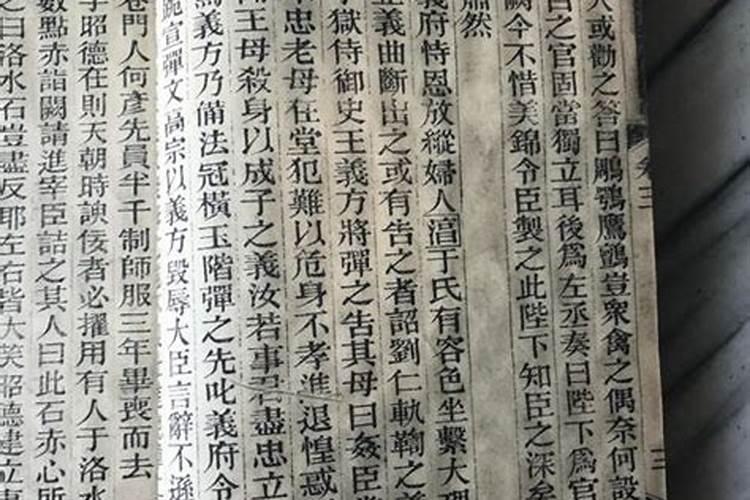 人或勸之答曰鵰鶚鷹鸇豈衆禽之偶奈何設
曰之官固當獨立耳後爲左丞奏曰陛下爲官
嗣今不惜美錦令臣製之此陛下知臣之深矣
肅然
義府恃恩放縱婦人淳于氏有容色坐繫大理
義曲斷出之或有告之者詔劉仁軌鞫之義
獄侍御史王義方將彈之告其母曰姦臣
忠老母在堂犯難以危身不孝進退惶惑
王母殺身以成子之義汝若事君盡忠立
義方乃備法冠橫玉階彈之先叱義府令
跪宣彈文高宗以義方毀辱大臣言辭不遜
巷門人何彥先員半千制師服三年畢喪而去
昭德在則天朝時諛佞者必擢用有人于洛水
數點赤詣闕請進宰臣詰之其人曰此石赤心所
之曰洛水石豈盡反耶左右皆大笑昭德建立